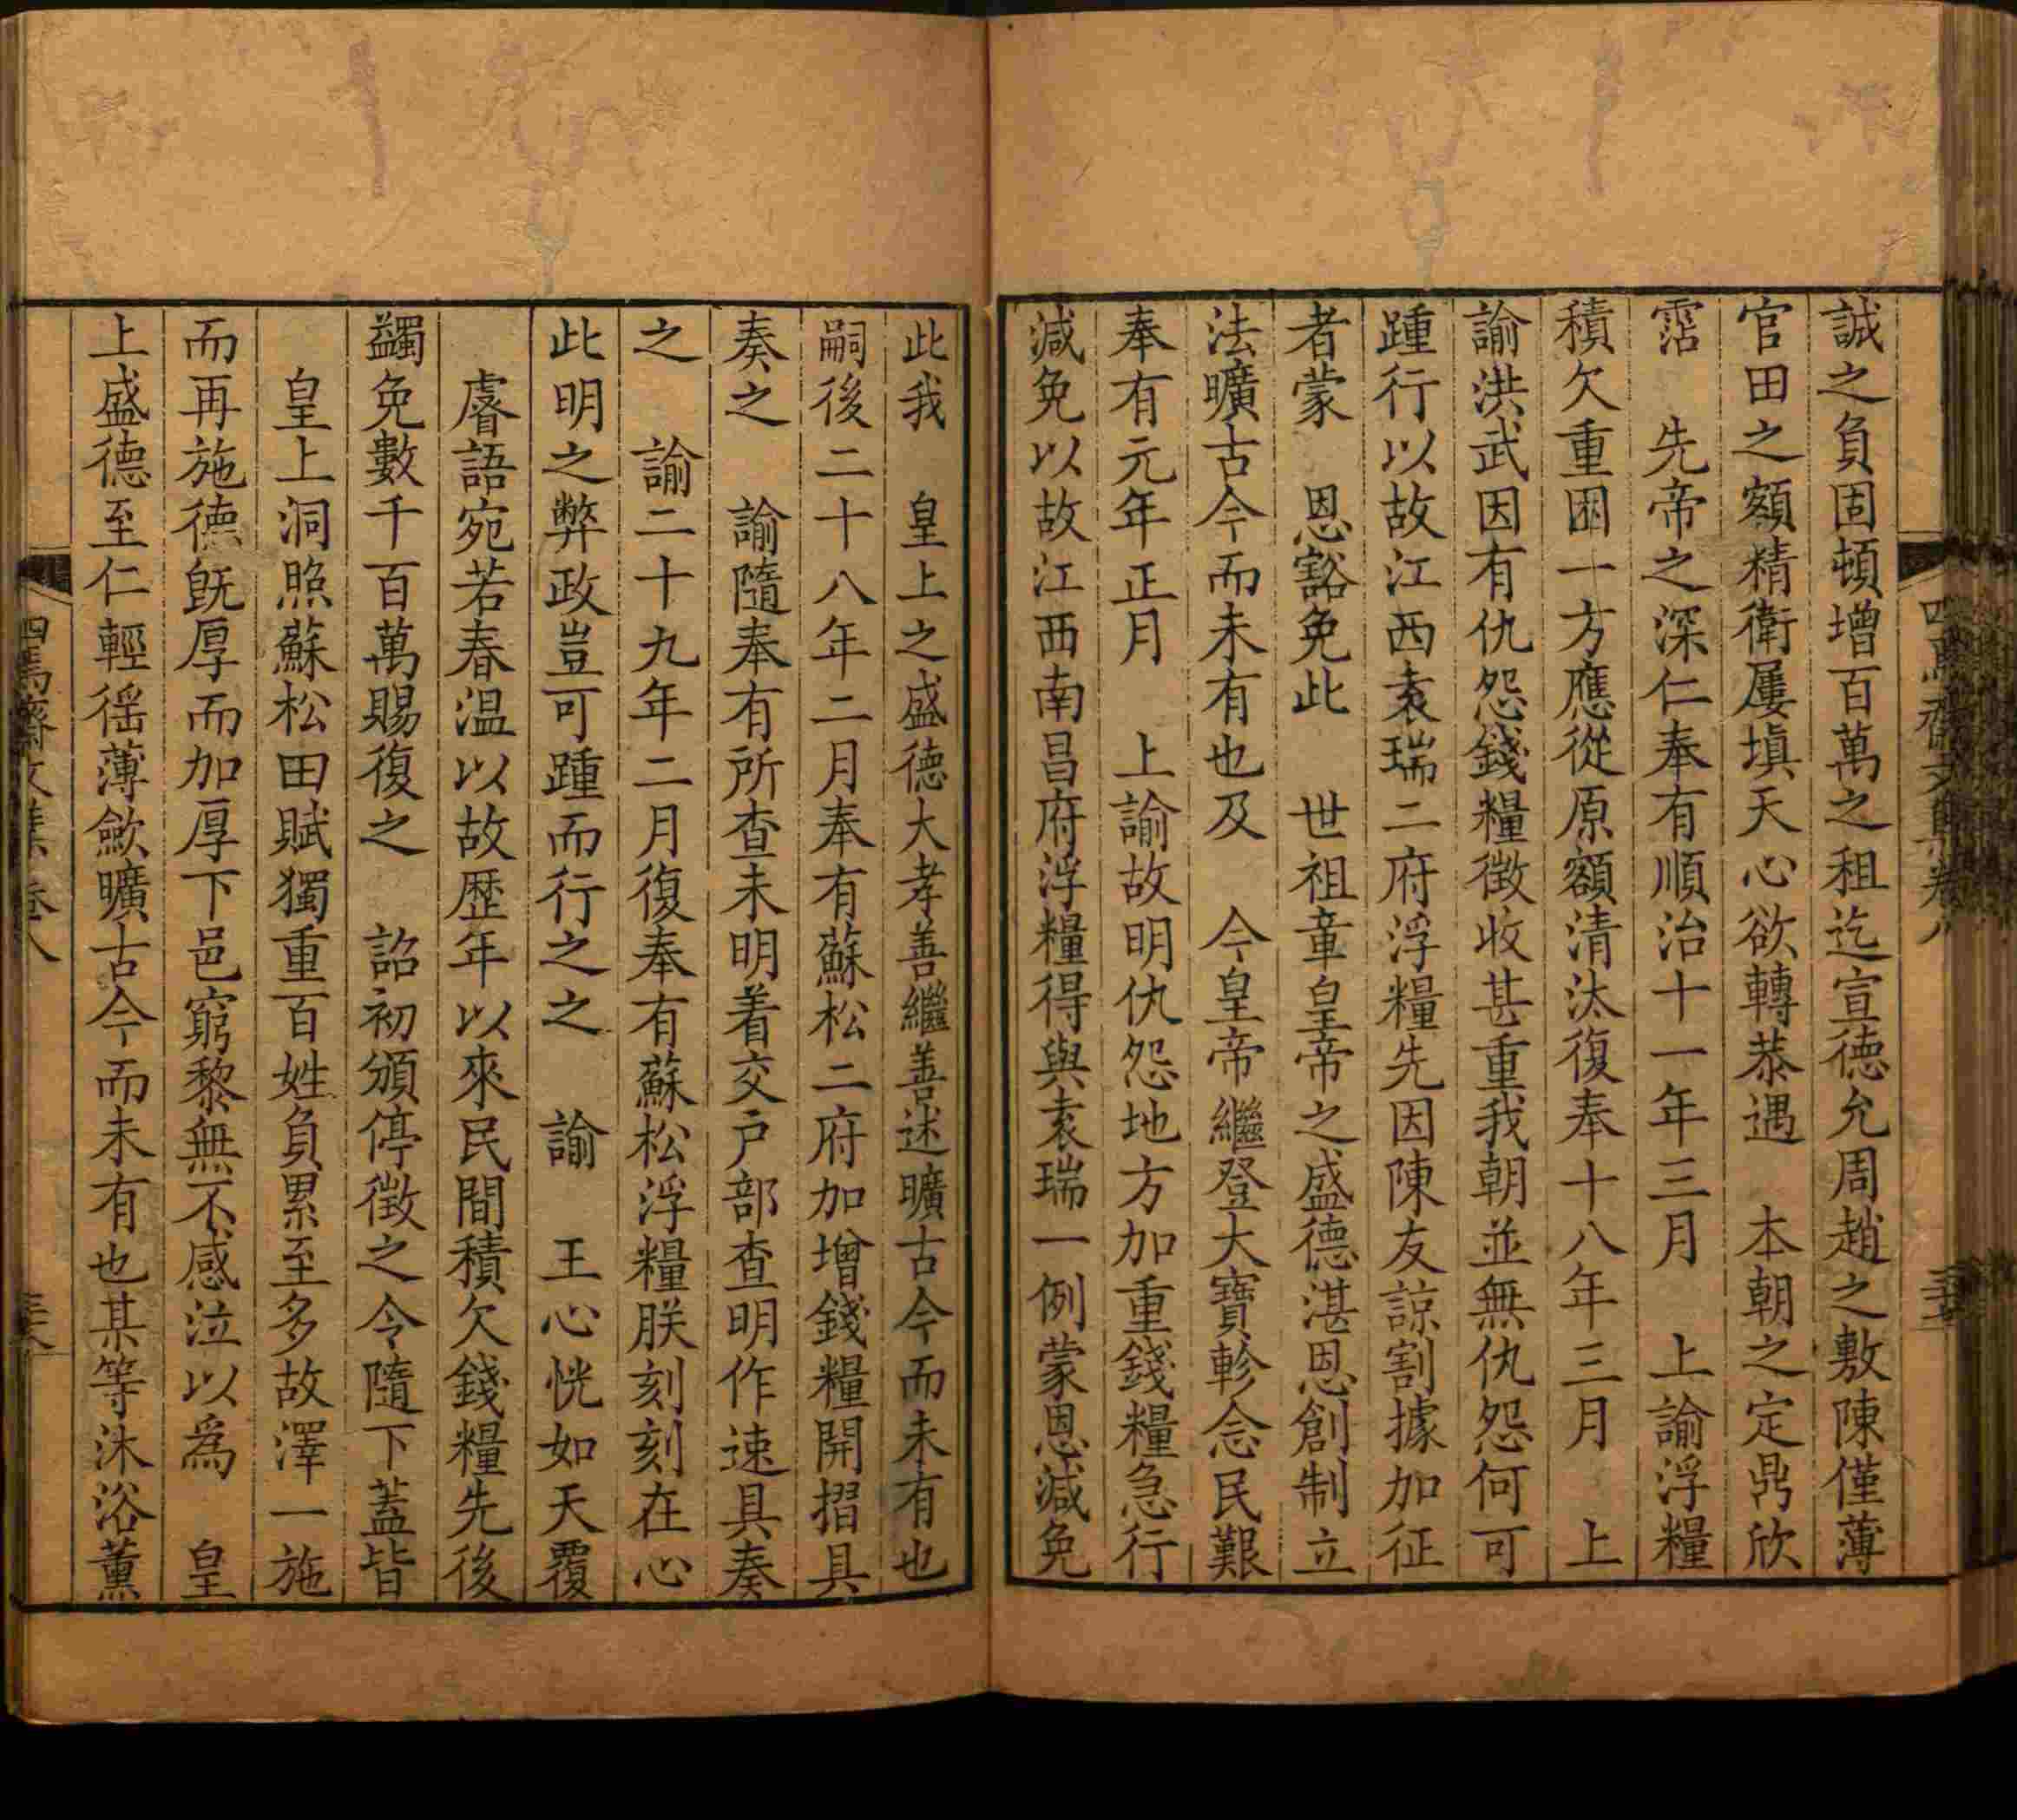 誠之負固頓增百萬之租迄宣德允周趙之敷陳僅薄
官田之額精衛屢塡天心欲轉恭遇　本朝之定鼎欣
霑　先帝之深仁奉有順治十一年三月　上諭浮糧
積欠重困一方應從原額清汰復奉十八年三月　上
諭洪武因有仇怨錢糧徵收甚重我朝並無仇怨何可
踵行以故江西袁瑞二府浮糧先因陳友諒割據加征
者蒙　恩豁免此　世祖章皇帝之盛德湛恩創制立
法曠古今而未有也及　今皇帝繼登大寶軫念民艱
奉有元年正月　上諭故明仇怨地方加重錢糧急行
減免以故江西南昌府浮糧得與袁瑞一例蒙恩減免
此我　皇上之盛德大孝善繼善述曠古今而未有也
嗣後二十八年二月奉有蘇松二府加增錢糧開摺具
奏之　諭隨奉有所查未明着交戶部查明作速具奏
之　諭二十九年二月復奉有蘇松浮糧朕刻刻在心
此明之弊政豈可踵而行之之　諭　王心恍如天覆
睿語宛若春温以故歷年以來民間積欠錢糧先後
蠲免數千百萬賜復之　詔初頒停徵之令隨下蓋皆
皇上洞照蘇松田賦獨重百姓負累至多故澤一施
而再施德旣厚而加厚下邑窮黎無不感泣以爲　皇
上盛德至仁輕徭薄斂曠古今而未有也某等沐浴薰
四焉齋文集卷八